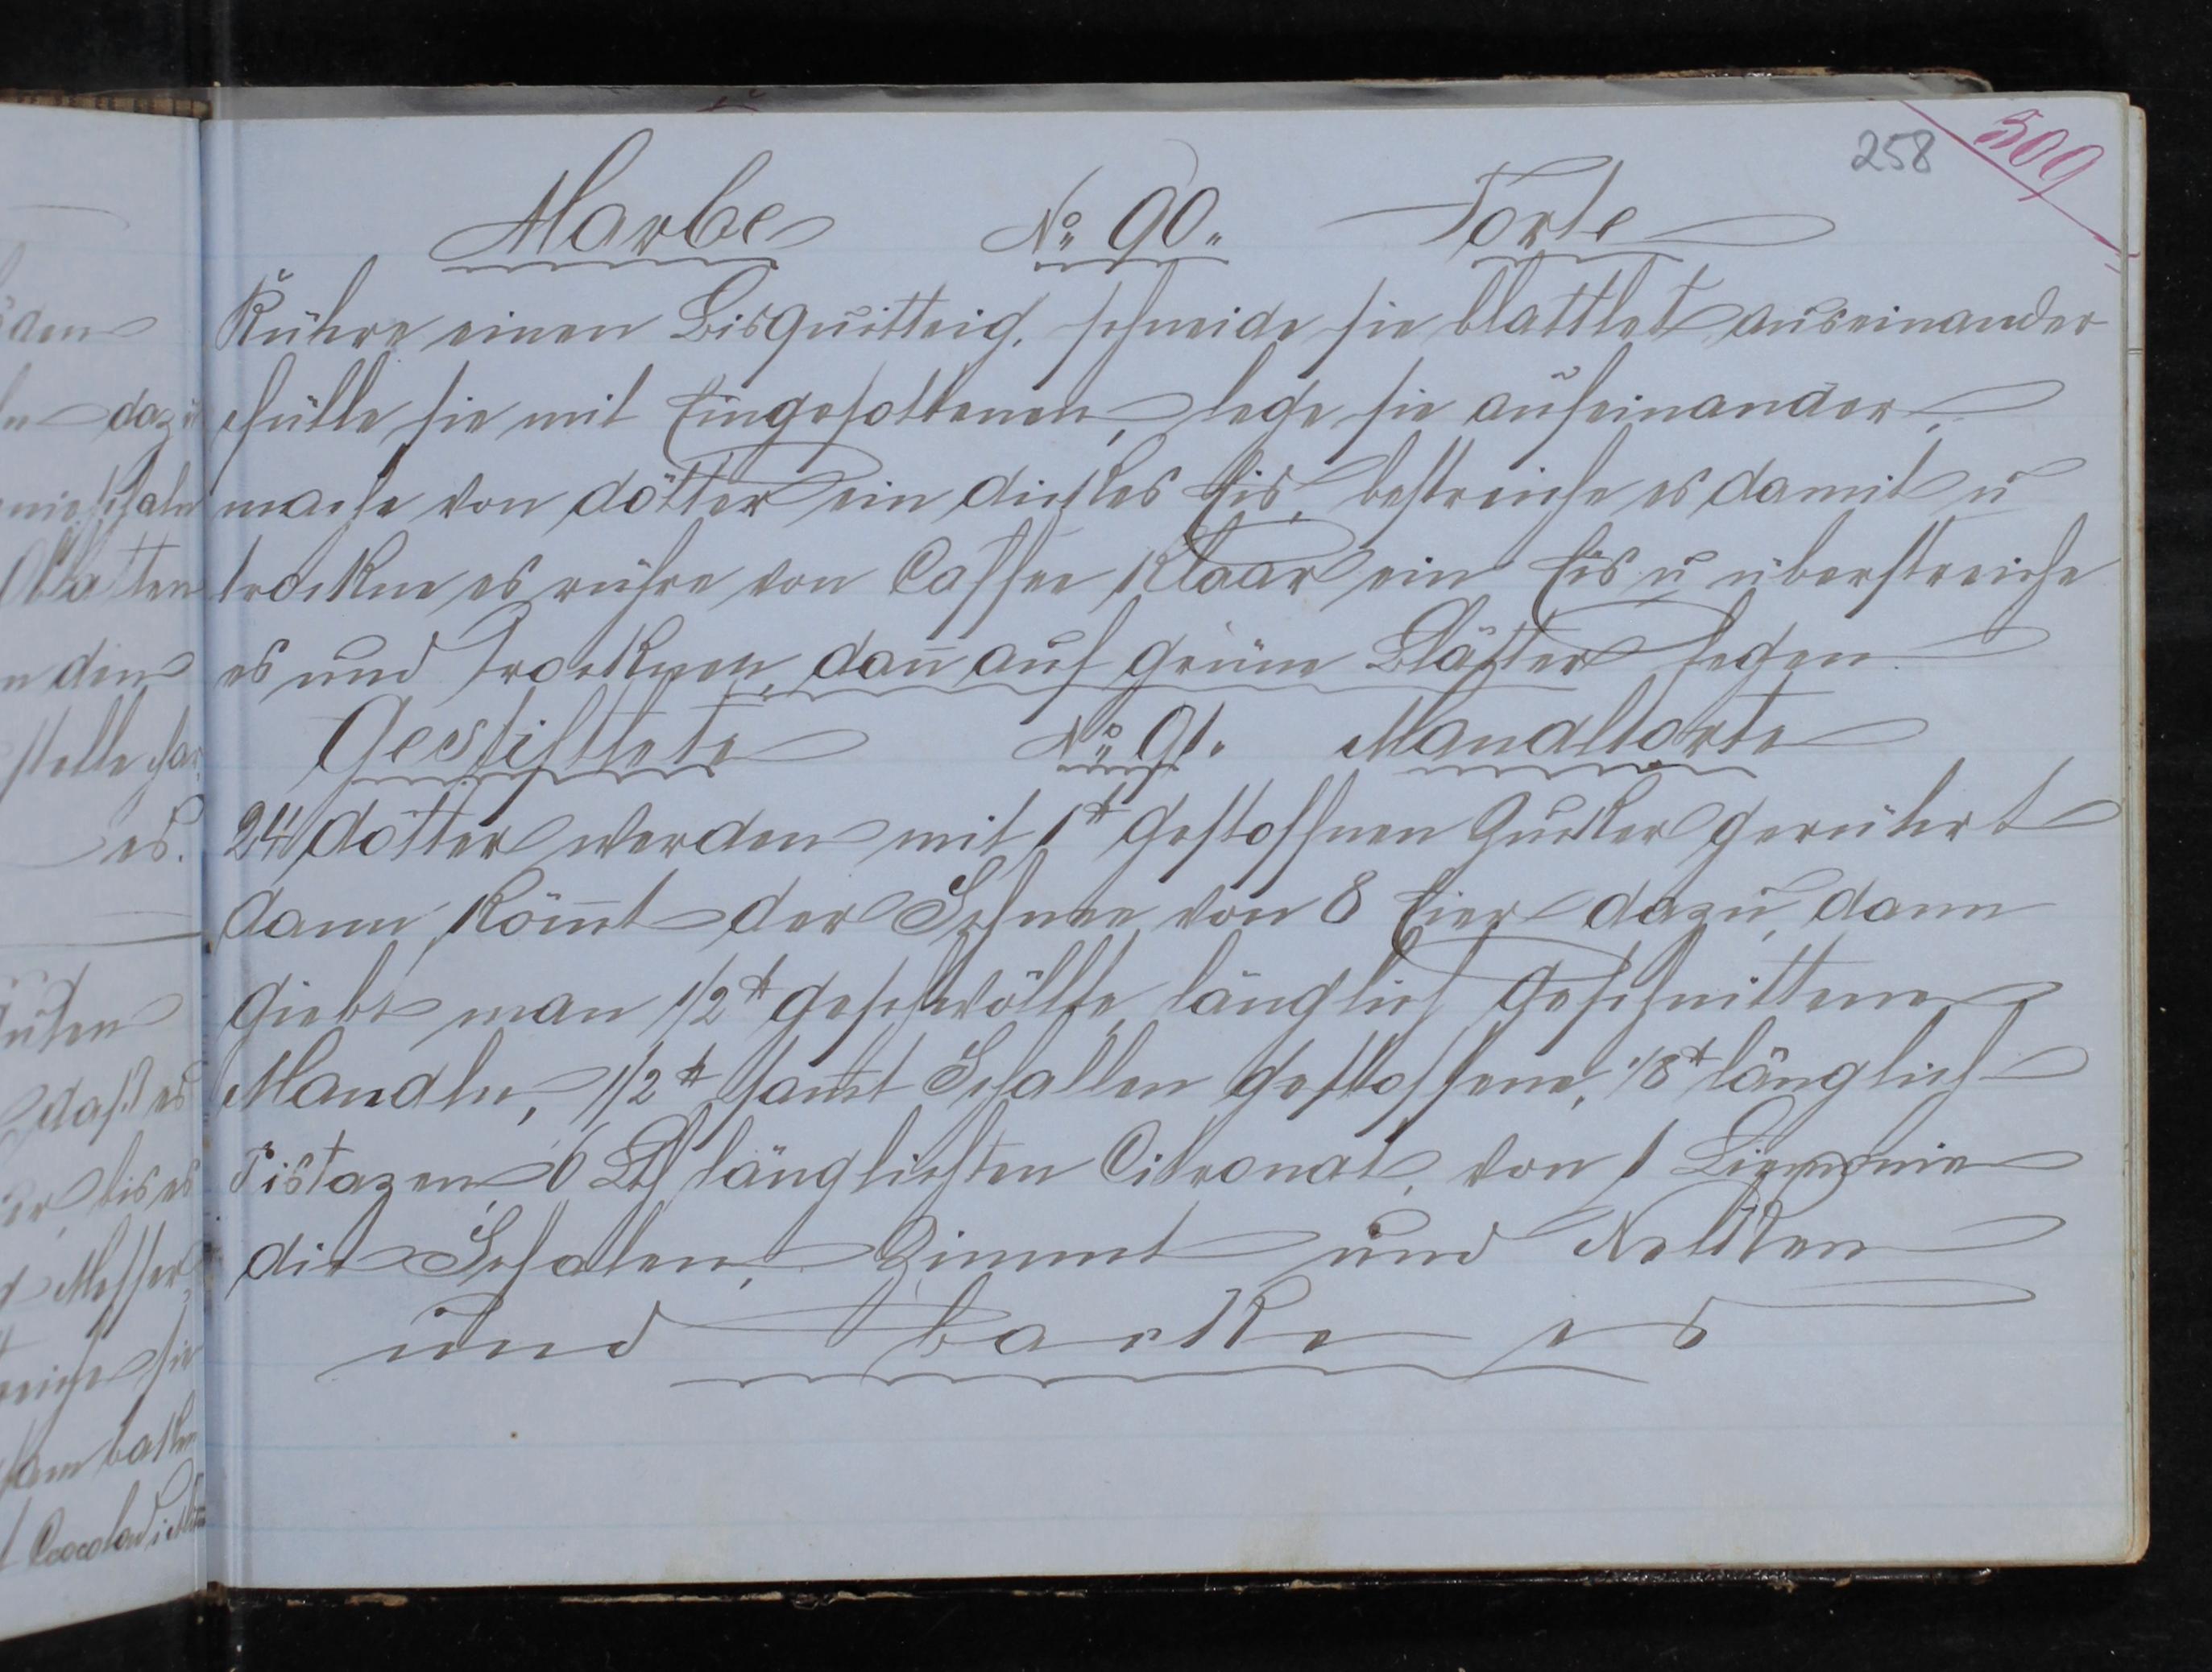 258
509
Marbe No 90. Torte
Rühre einen Bisquitteig, schneide sie blattlet auseinander
fülle sie mit Eingesottenen, lege sie aufeinander,
mache von dötter ein dickes Eis, bestreiche es damit u
trockne es, rühre von Caffee Klaar ein Eis u überstreiche
es und trocknen, dañ auf grüne Blätter legen.
Gestiftlete No 91. Mandltorte
24 dötter werden mit 1 ℔ gestossnen Zucker gerührt
dann köm̅t der Schnee von 8 Eier dazu, dann
giebt man 1/2 ℔ geschwöllte länglich geschnittene
Mandln, 1/2 ℔ sam̅t Schallen gestossene, 1/8 ℔ länglich
Pistazen 6 Lth länglichten Citronat, von 1 Liemonie
die Schalen, Zimmt und Nelken
und backe es